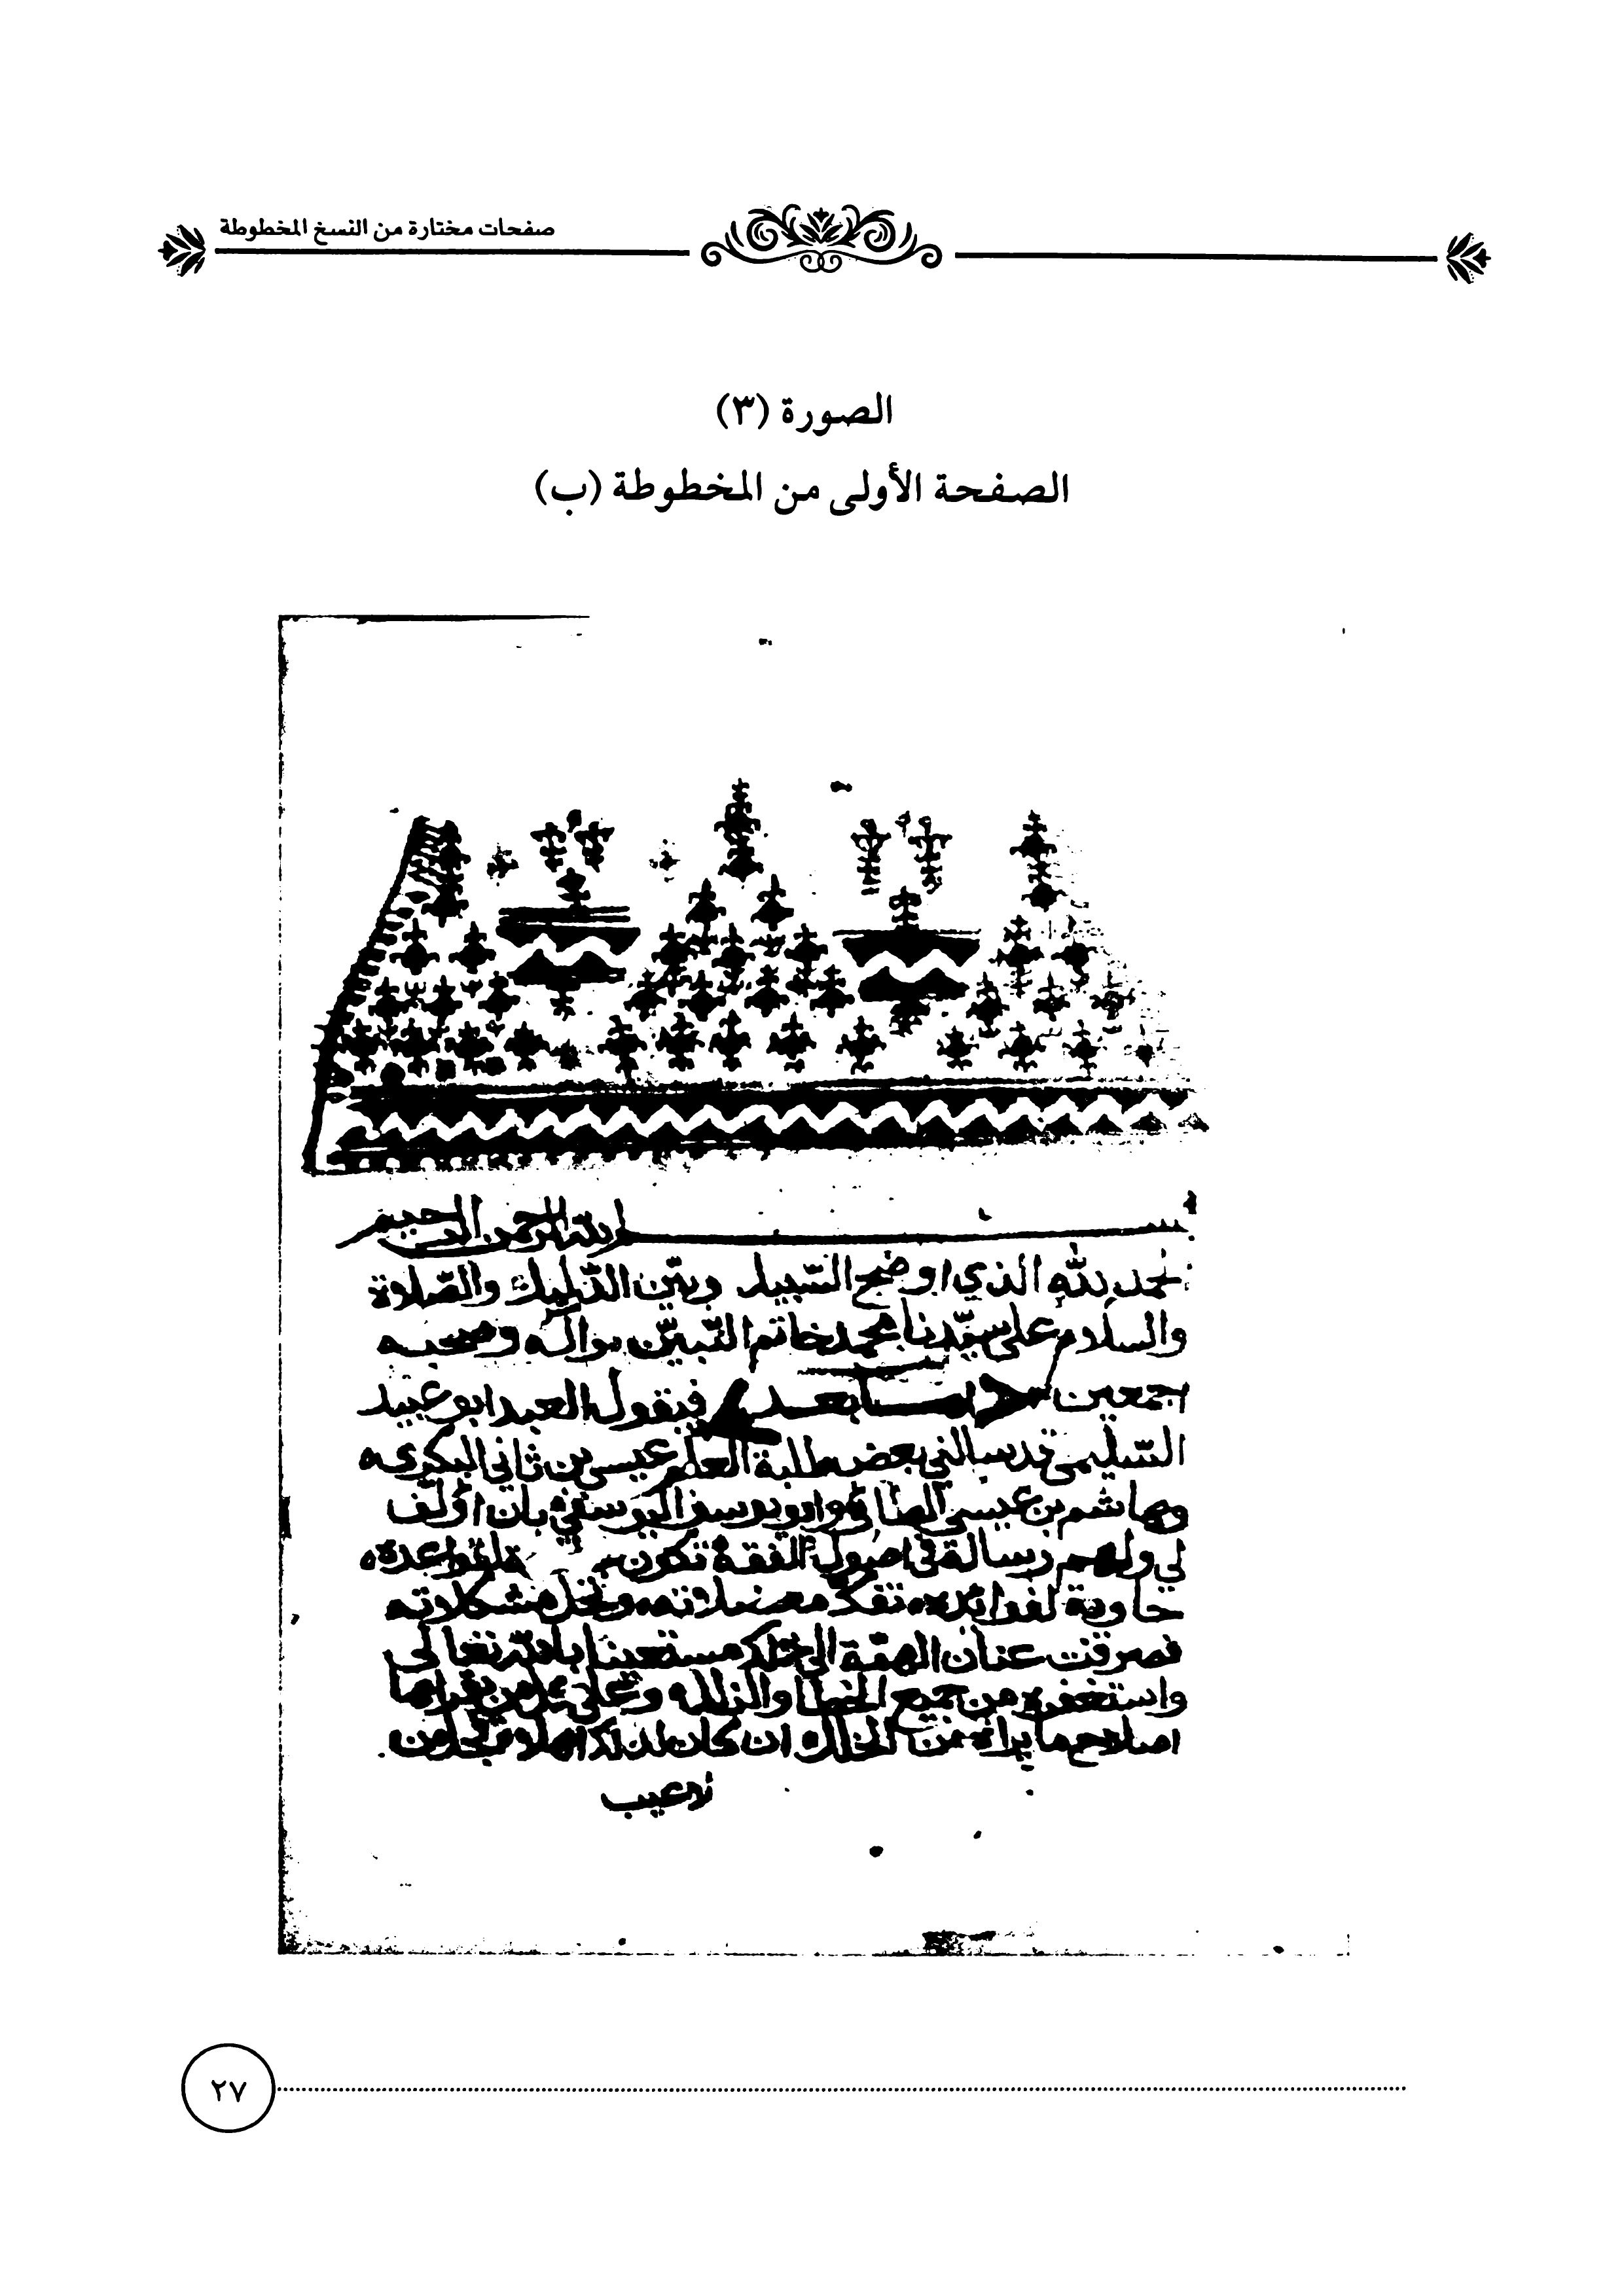 صفحات مختارة من النسخ المخطوطة
الصورة (٣)
الصفحة الأولى من المخطوطة (ب)
بسم الله الرحمن الرحيم
الحمد لله الذي اوضح السبيل وبيّن الدليل والصّلاة
والسلام على سيّدنا محمد خاتم النّبيّن واله وصحبه
اجمعين اما بعد فيقول العبد ابو عبيد
السّليمي قد سالني بعض طلبة العلم عيسى بن ثاني البكري
وهاشم بن عيسى الطائي وابو يوسف اليوسفي بان اؤلف
لي ولهم رسالة في اصول الفقه تكون لقواعده
حاوية لفوائده تفك معضلاته وتحل مشكلاته
فصرفت عنان الهمّة الى ذلك مستعينا بالله تعالى
واستغفره من جميع الخطا والزلل وعلى من يقراها
اصلاح ما يراه من الخلل ان كان لذلك اهلا فجل من
لا عيب
٢٧